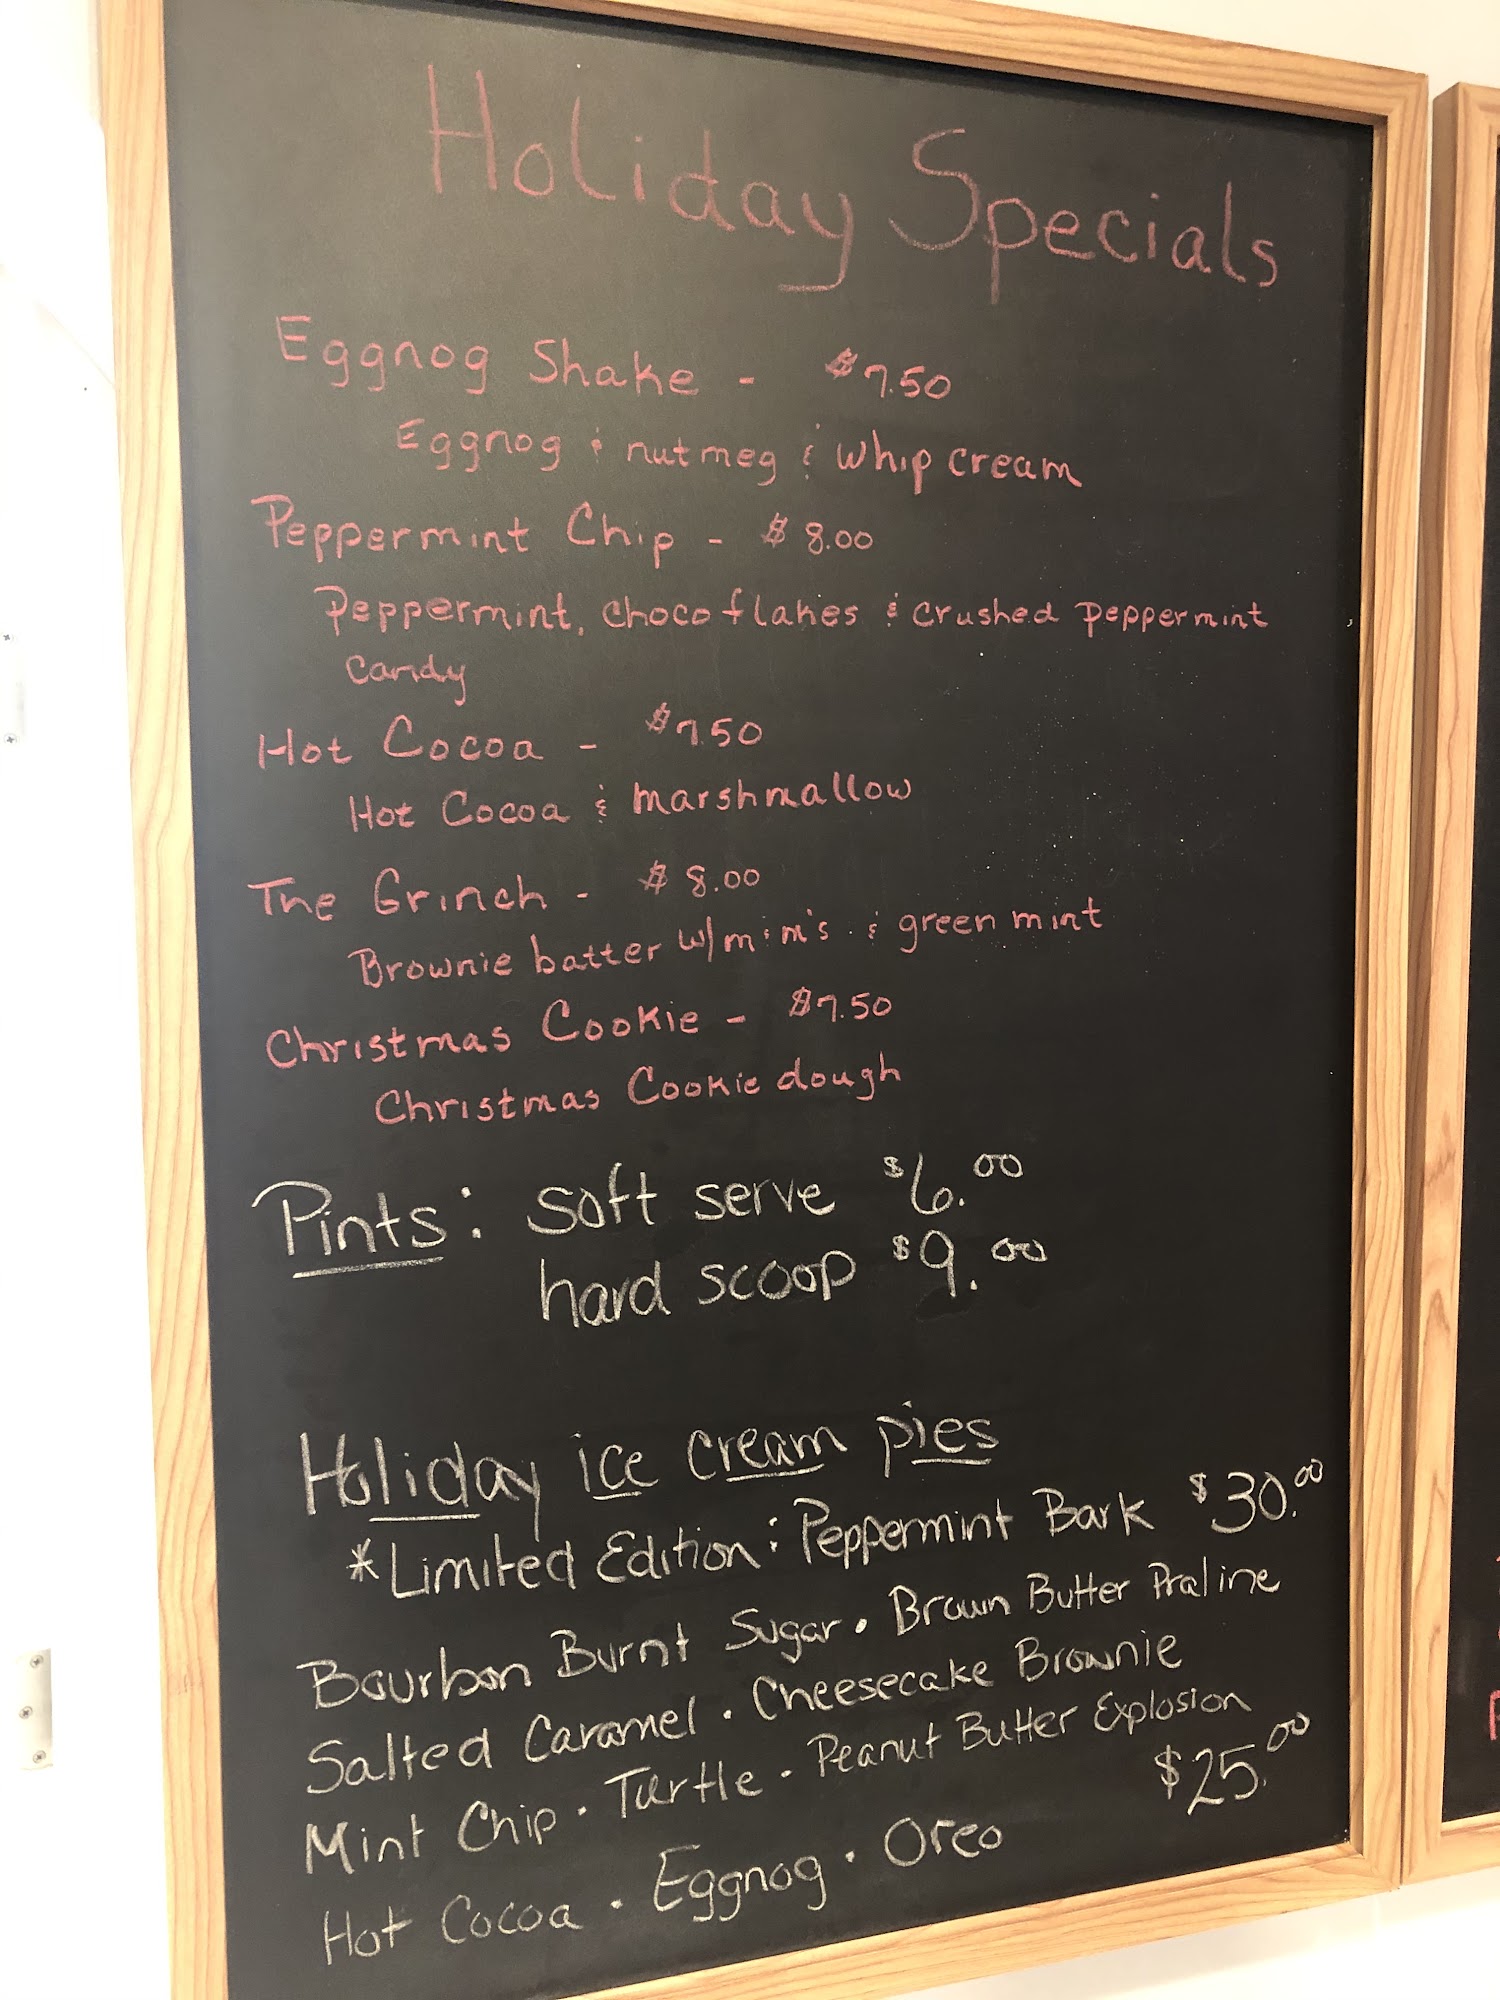 Holiday Specials
Eggnog Shake - $7.50
Eggnog & nutmeg & whip cream
Peppermint Chip - $8.00
Peppermint, choco flakes & crushed peppermint
candy
Hot Cocoa - $7.50
Hot Cocoa & marshmallow
The Grinch - $8.00
Brownie batter w/ m&m's & green mint
Christmas Cookie - $7.50
Christmas Cookie dough
Pints: soft serve $6.00
hard scoop $9.00
Holiday ice cream pies
*Limited Edition: Peppermint Bark $30.00
Bourbon Burnt Sugar • Brown Butter Praline
Salted Caramel • Cheesecake Brownie
Mint Chip • Turtle • Peanut Butter Explosion
Hot Cocoa • Eggnog • Oreo $25.00